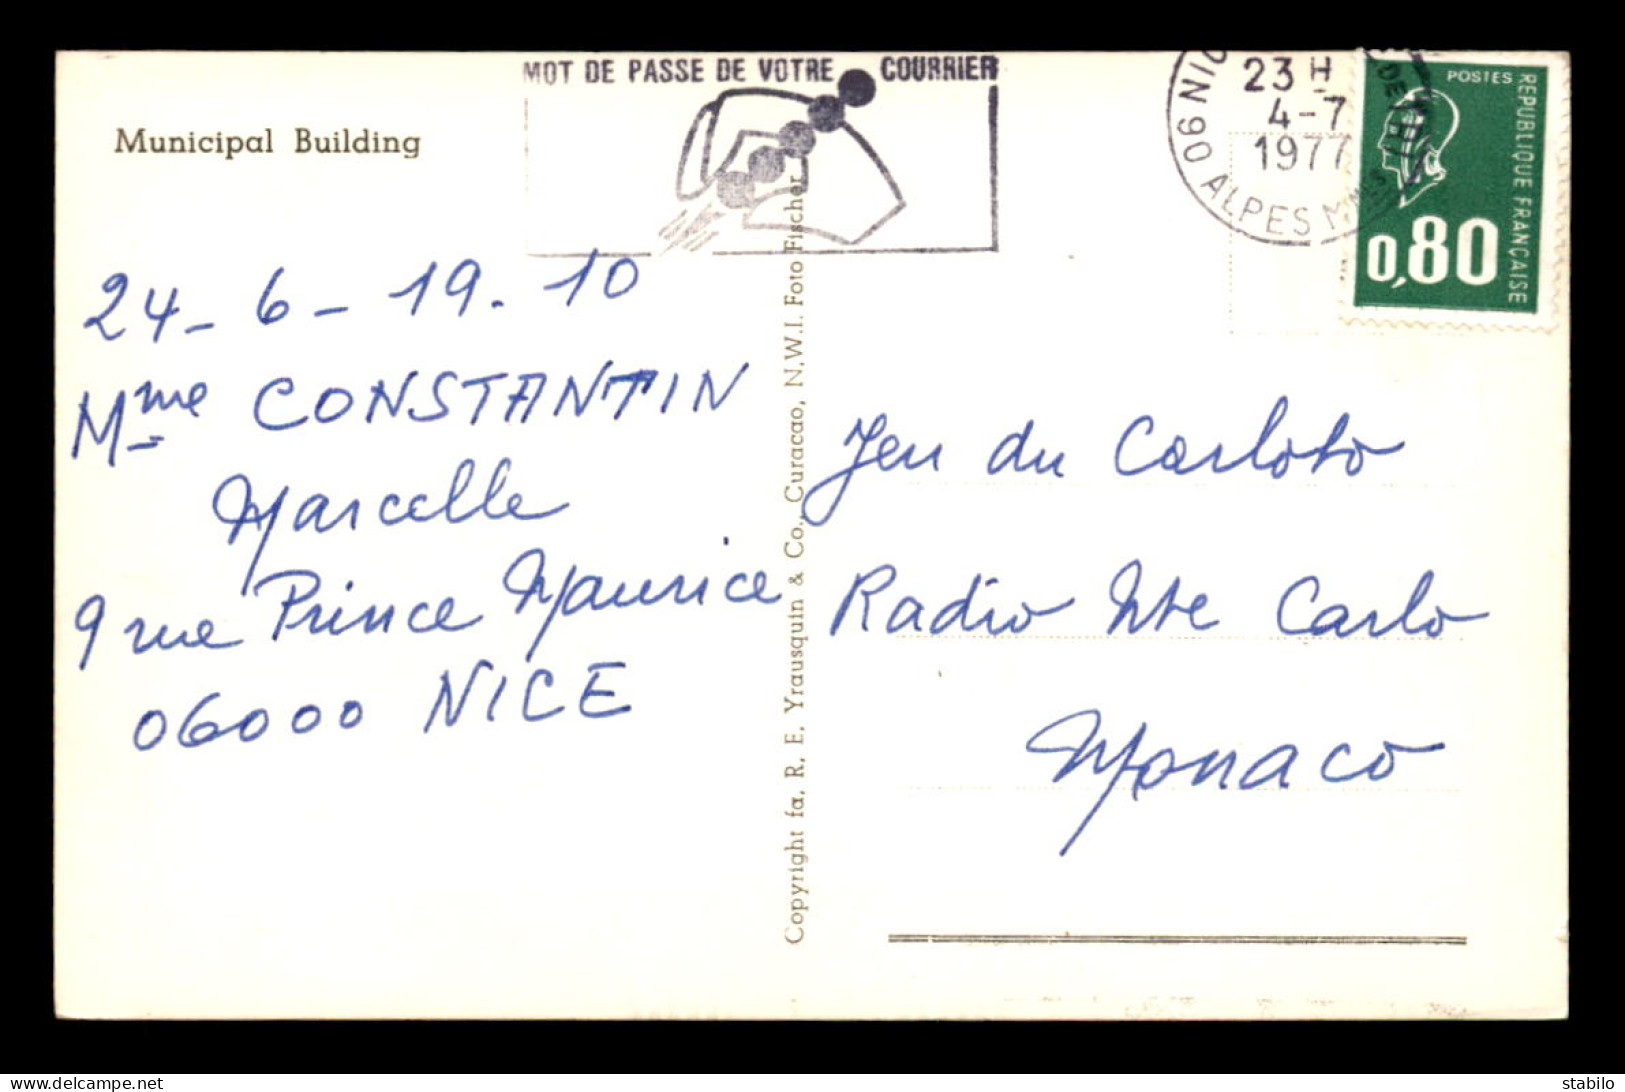 MOT DE PASSE DE VOTRE COURRIER
23 H
4-7
1977
06 ALPES MMES
POSTES
REPUBLIQUE FRANÇAISE
0,80
Municipal Building
24-6-19.10
Mme CONSTANTIN
Marcelle
9 rue Prince Maurice
06000 NICE
Copyright fa. R. E. Yrausquin & Co., Curacao, N.W.I. Foto Fischer
Jeu du Carloto
Radio Mte Carlo
Monaco
stabilo